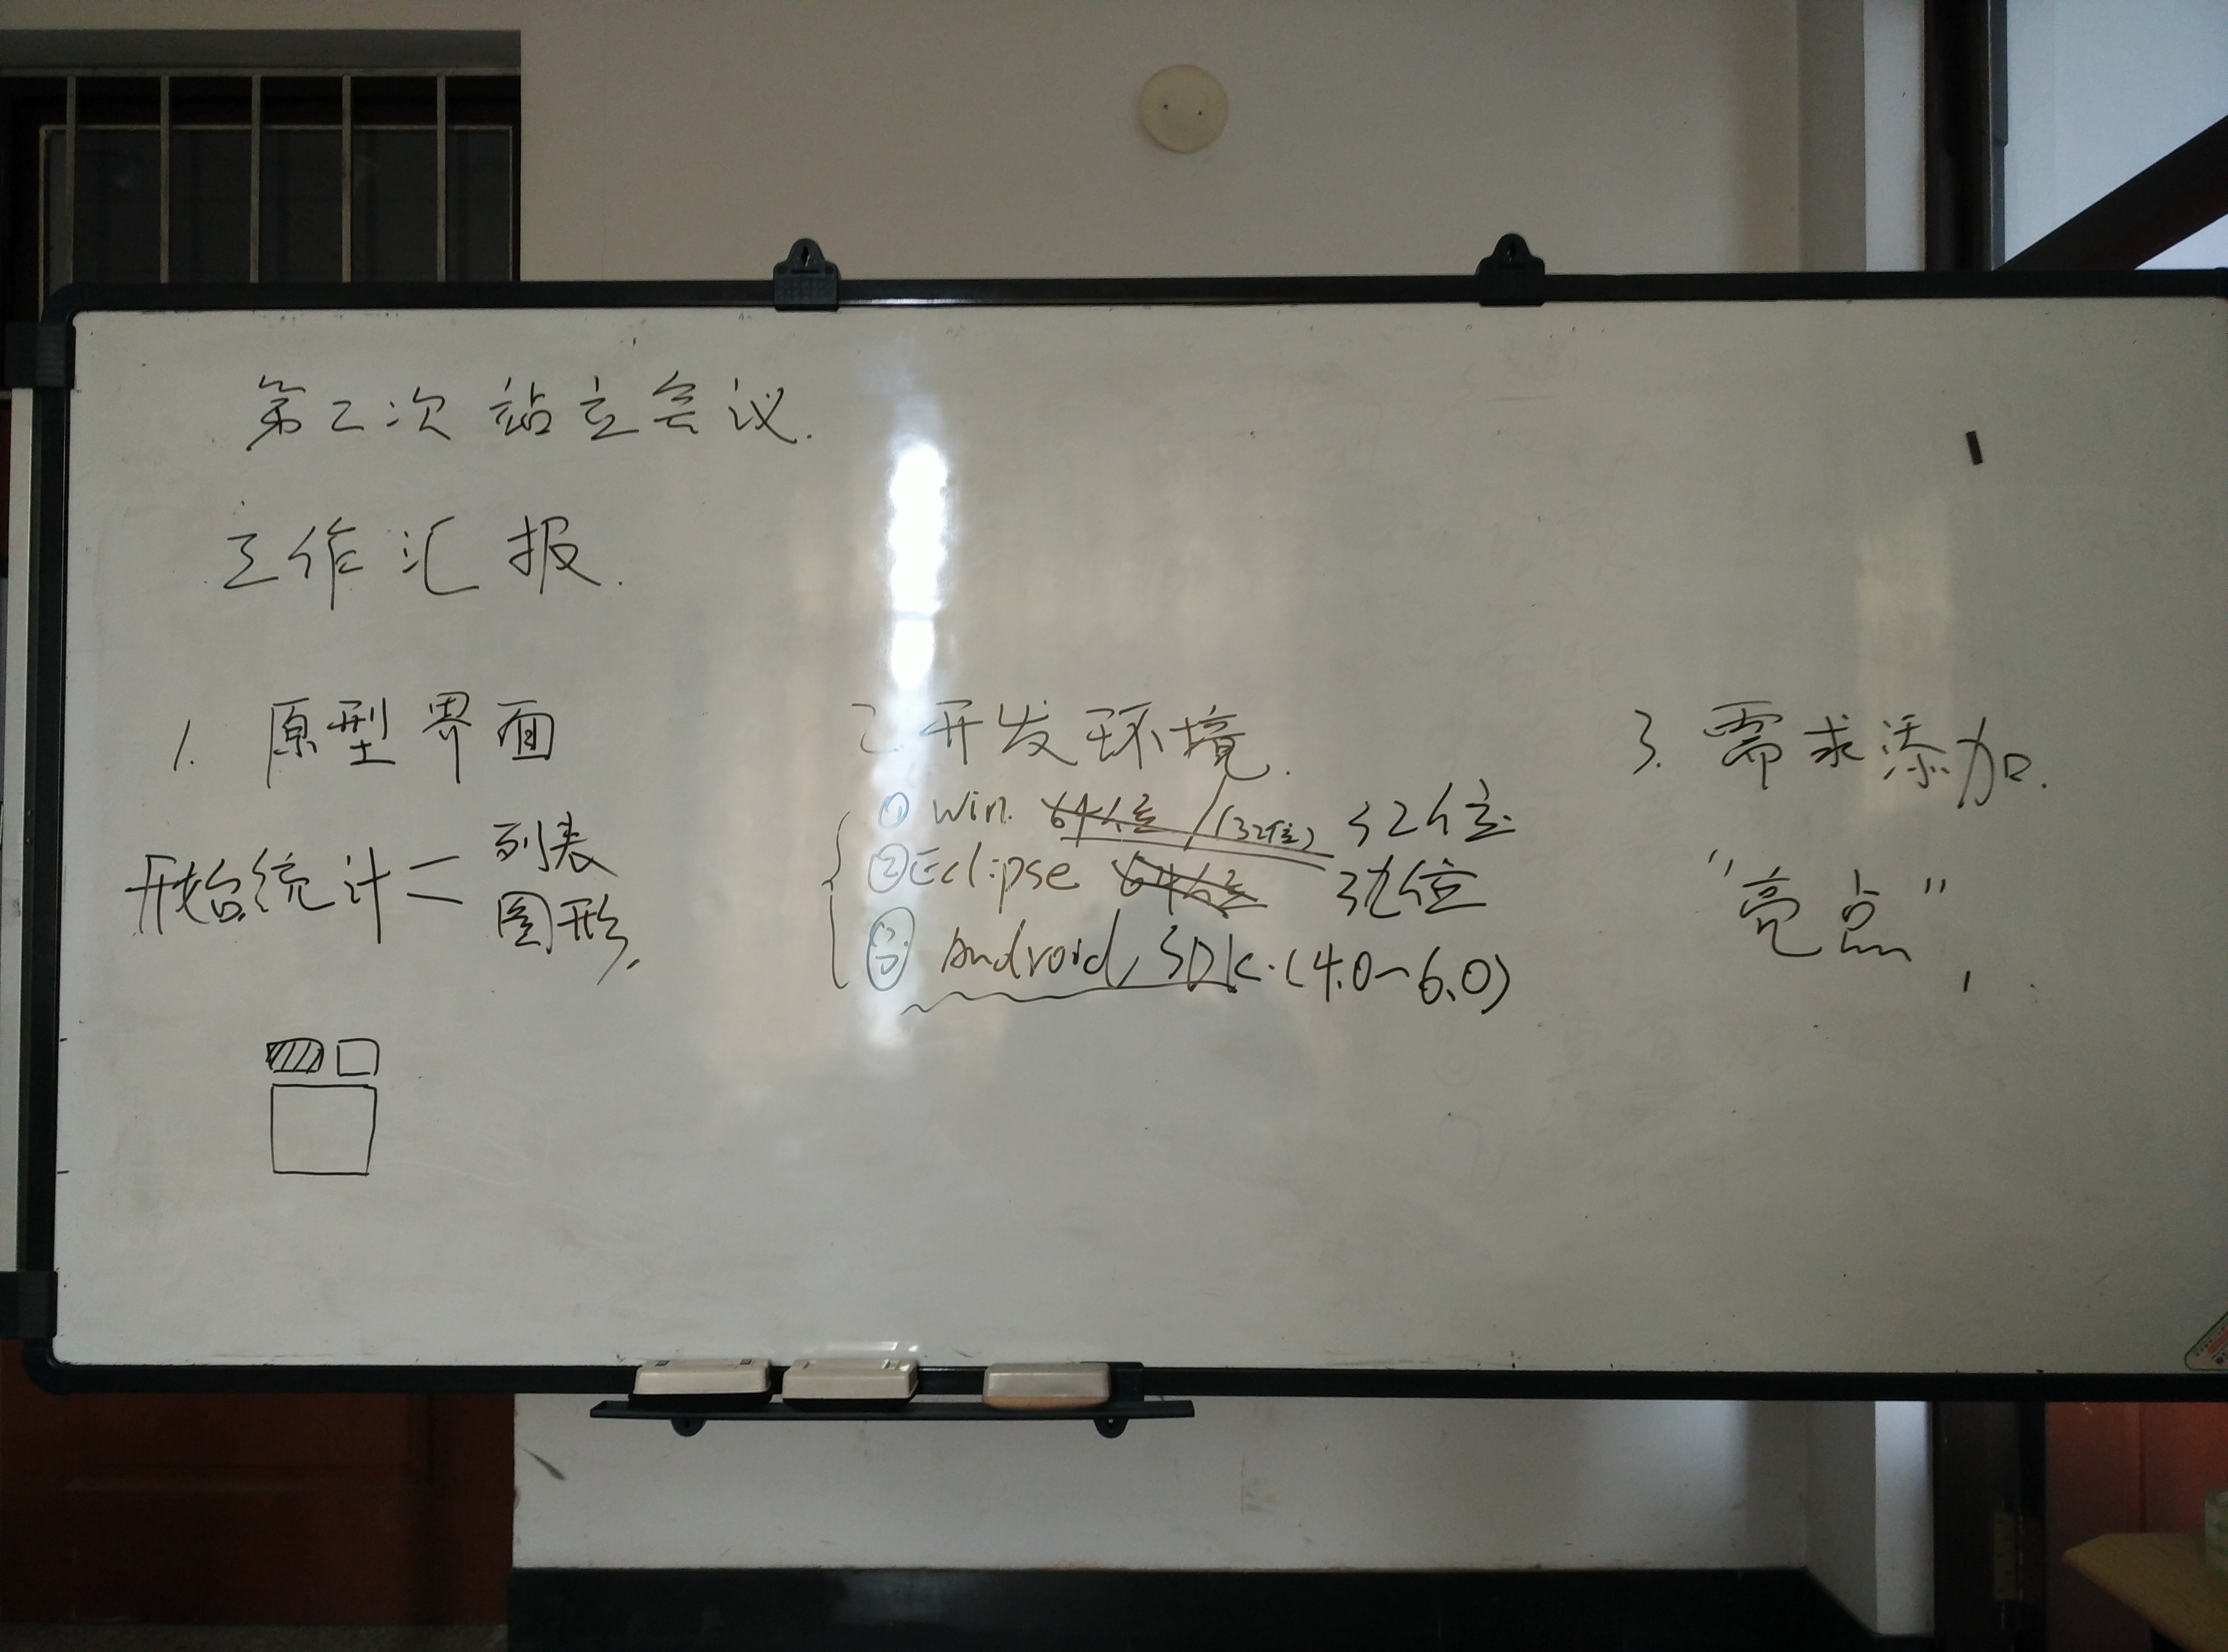 第二次 站立会议.
工作汇报.
1. 原型界面
开始统计
列表
图形,
2.开发环境.
① Win. 64位/(32位) 32位.
② Eclipse 64位 32位
③ Android, SDK.(4.0~6.0)
3. 需求添加.
"亮点",